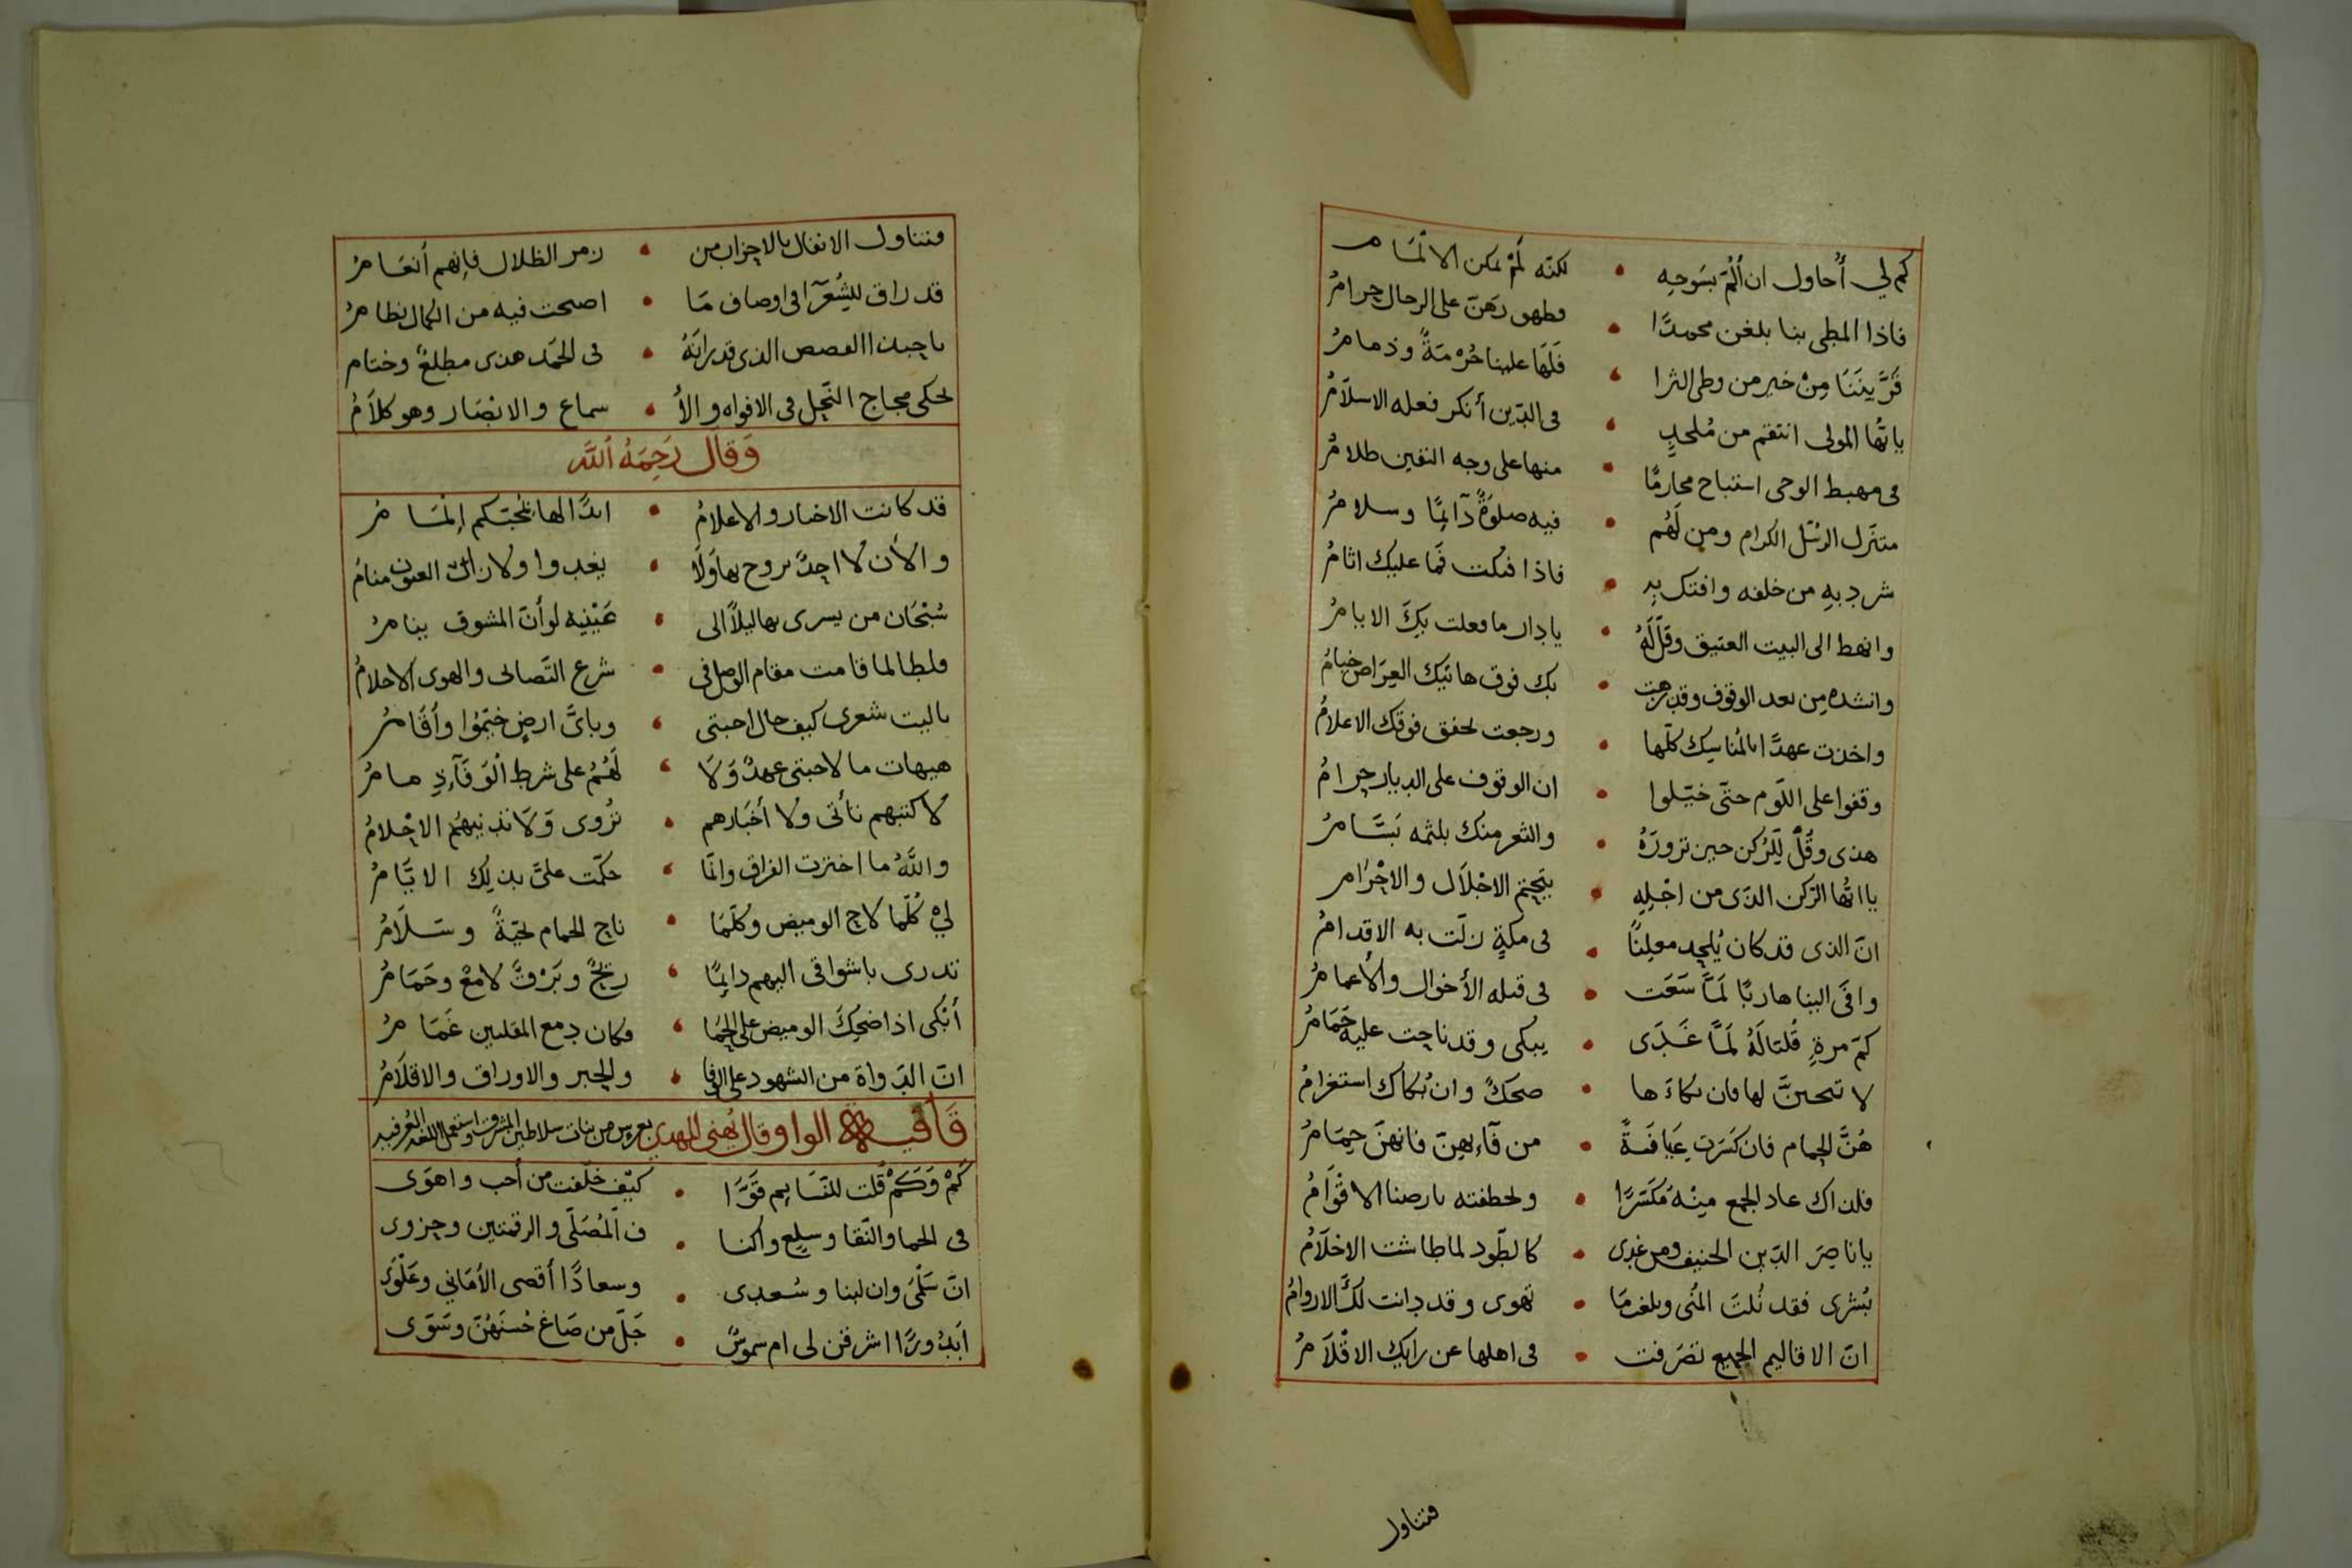 كم لي أُحاول ان أَلُمّ بسَوحِه • لكنّه لَمْ يمكن الالْمَام
فاذا المطى بنا بلغن محمدًا • فظهورهنّ على الرحال حرامُ
قَرَّبنَنَا مِنْ خير من وطى الثرا • فَلَهَا علينا حُرْمَةً وذمامُ
ياايّها المولى انتقم من مُلحدٍ • فى الدّين أنكر فعله الاسلاَمُ
فى مهبط الوحى استباح محارمًا • منها على وجه اليقين ظلامُ
متنزل الرسُل الكرام ومن لَهُم • فيه صلوَةٌ دآئمًا وسلامُ
شرد به من خلفه وافتك به • فاذا فتكت فمَا عليك اثامُ
وانهط الى البيت العتيق وقل لَهُ • يا دار ما فعلت بكَ الايامُ
وانشده من بعد الوقوف وقد • بك فوق هاتيك العِرَاص خيامُ
واخذت عهدًا بالمناسِك كلّها • ورجعت تحفق فوقك الاعلامُ
وقفوا على اللّوم حتّى خيّلوا • ان الوقوف على الديار حرامُ
هذى وقُلْ للرُّكن حين تزورَهُ • والثغر منك بلثمه بَسَّامُ
ياايّها الركن الذى من اجْلِهِ • يتحتم الاجْلاَل والاحْرَام
انّ الذى قد كان يُلحد معلِنًا • فى مكةٍ زلّت به الاقدامُ
وافَى الينا هاربًا لَمَّا سَعَت • فى قتله الأخوال والأعمامُ
كمّ مرةٍ قُلتَا لَهُ لَمَّا غَدَى • يبكى وقد ناحت عليه حَمَامُ
لا تحسبنَّ لها فان بكاءَها • ضحكٌ وان بُكاك استغرامُ
هُنَّ الحِمام فان كسَرت عَيافَةً • من حآءهنّ فانهنَّ حِمَامُ
فلذاك عاد الجمع مِنْهُ مكَسَّرًا • ولحطفته بارضنا الاقوَامُ
ياناصِرَ الدّين الحنيف ومن غدى • كالطّود لما طاشت الاحْلَامُ
بُشرى فقد نُلتَ المُنى وبلغت مَا • تهوى وقد دانت لكَ الاروامُ
انّ الاقاليم الجميع تصَرفت • فى اهلها عن رايك الاقْلاَمُ
فتناول
فتناول الانفال بالاحزاب من • زمر الظلال فإنهم أنعَامُ
قد راق للشُعَرآ فى اوصاف مَا • اصبحت فيه من الكمال نظامُ
ياحبذا القصص الذى قد زانَهُ • فى الحمَد هذى مطلعٌ وختام
يحكى مجاج النّحل فى الافواه والأ • سماع والابْصَار وهو كلاَمُ
وَقَالَ رَحِمَهُ اللَّه
قد كانت الاخبار والاعلامُ • ابدًا لها بمُحبّكم إلمْامُ
والأن لا احدٌ يروح بها وَلَا • يغدوا ولا زان العيون منامُ
سُبْحَان من يسرى بها ليلاً الى • عَيْنيه لو أنّ المشوق ينامُ
فلطا لما قامت مقام الوصل فى • شرع التّصابى والهوى الاحلامُ
ياليت شعرى كيف حال احبتى • وباىّ ارضٍ خيّمُوا وأقامُ
هيهات ما لاحبتى عهدٌ وَلَا • لَهُمُ على شرط الْوَفَآءِ ذمامُ
لا كتبهم تأتى ولا أخبَارهم • تُروى وَلَا تدنيهُم الاحْلامُ
واللَّهُ ما اخترت الفراق وانّما • حكمّت علىّ بذلِك الايَّامُ
لِيْ كُلّما لاح الوميض وكُلّمَا • ناح الحمام تحيّةً وسَلَامُ
تدرى باشواقى اليهم دايمًا • ريحٌ وبَرْقٌ لامعٌ وحَمَامُ
أبْكى اذا ضحِكَ الوميض على الحِمَا • فكان دمع المقلتين غَمَامُ
انّ الدّواة من الشهود على الوفا • والحِبر والاوراق والاقلَامُ
قَافيه الواو وقال يُهنى المهدى بعرس من بنات سلاطين المشرق واستعمل اللغه العُرفيه
كَمْ وَكَمْ قُلت للنّسَايم قَوَّا • كيّف خلّفت من أحب واهوَى
فى الحما والنّقا وسلِع واكنا • ف المُصَلّى والرقمتين وحزوى
انّ سَلْمَى وان لبنا وسُعدى • وسعادًا أقصى الأمَاني وعَلْوَى
اَبَدُورًا اشرقن لى ام شموسٌ • جَلّ من صَاغ حُسنَهُنّ وسَوّى